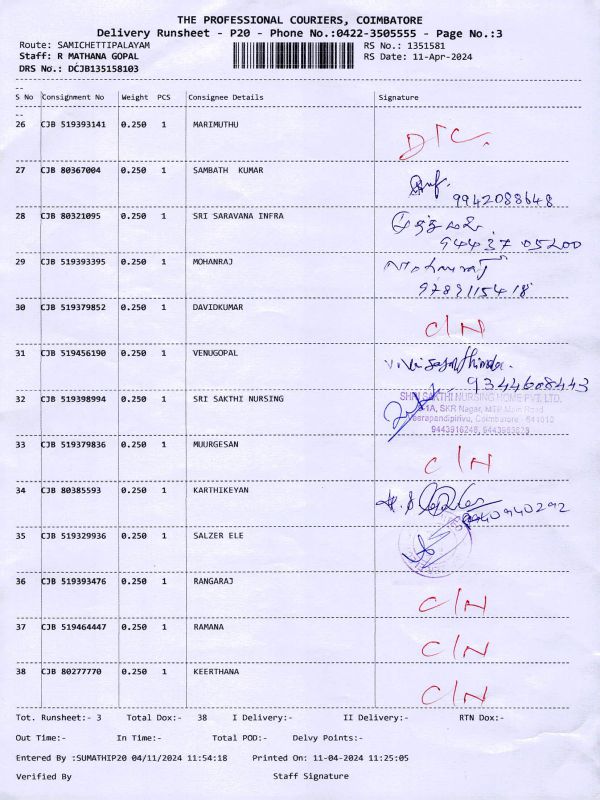 THE PROFESSIONAL COURIERS, COIMBATORE
Delivery Runsheet - P20 - Phone No.:0422-3505555 - Page No.:3
Route: SAMICHETTIPALAYAM RS No.: 1351581
Staff: R MATHANA GOPAL RS Date: 11-Apr-2024
DRS No.: DCJB135158103
--
S No Consignment No Weight PCS Consignee Details Signature
26 CJB 519393141 0.250 1 MARIMUTHU
27 CJB 80367004 0.250 1 SAMBATH KUMAR
9942088648
28 CJB 80321095 0.250 1 SRI SARAVANA INFRA
94437 05200
29 CJB 519393395 0.250 1 MOHANRAJ
9789115418
30 CJB 519379852 0.250 1 DAVIDKUMAR C/N
31 CJB 519456190 0.250 1 VENUGOPAL
9344608443
32 CJB 519398994 0.250 1 SRI SAKTHI NURSING SHRI SAKTHI NURSING HOME PVT. LTD.
1A, SKR Nagar, MTP Main Road
Veerapandipirivu, Coimbatore - 641019
33 CJB 519379836 0.250 1 MUURGESAN C/N
34 CJB 80385593 0.250 1 KARTHIKEYAN
35 CJB 519329936 0.250 1 SALZER ELE
36 CJB 519393476 0.250 1 RANGARAJ C/N
37 CJB 519464447 0.250 1 RAMANA C/N
38 CJB 80277770 0.250 1 KEERTHANA C/N
Tot. Runsheet:- 3 Total Dox:- 38 I Delivery:- II Delivery:- RTN Dox:-
Out Time:- In Time:- Total POD:- Delvy Points:-
Entered By :SUMATHIP20 04/11/2024 11:54:18 Printed On: 11-04-2024 11:25:05
Verified By Staff Signature